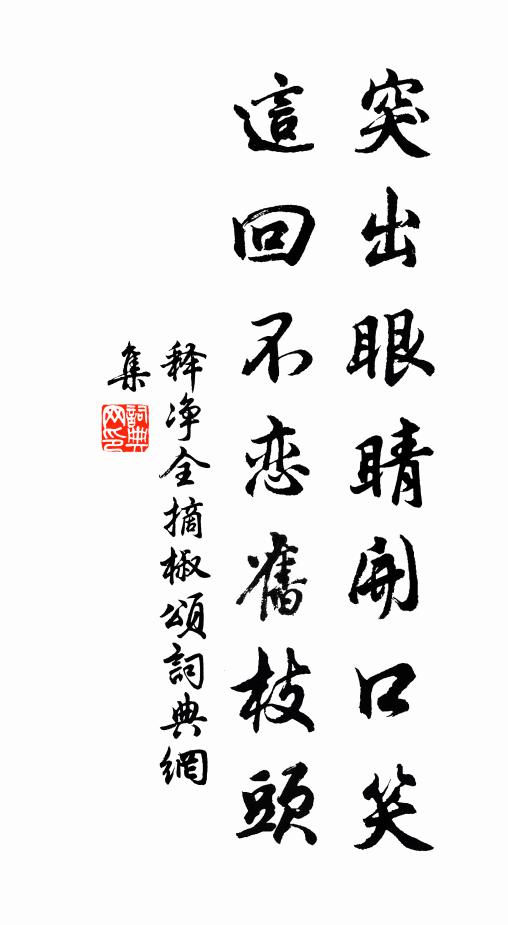 突出眼睛開口笑
這回不恋舊枝頭
释净全摘椒頌詞典網
集
詞典网印